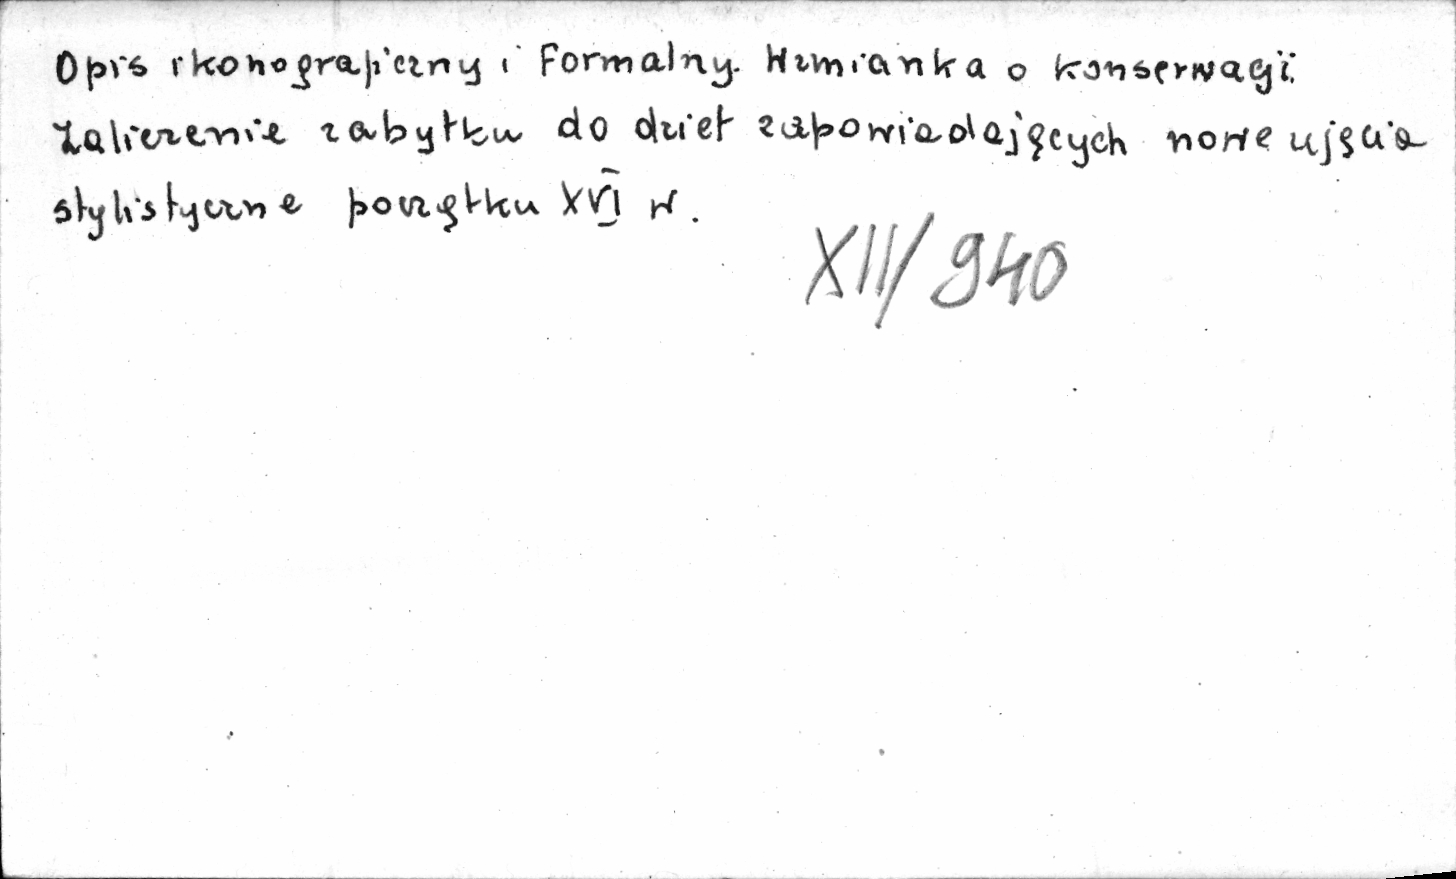 Opis ikonograficzny i formalny. Wzmianka o konserwacji.
Zaliczenie zabytku do dzieł zapowiadających nowe ujęcia
stylistyczne początku XVI w.
XII/940